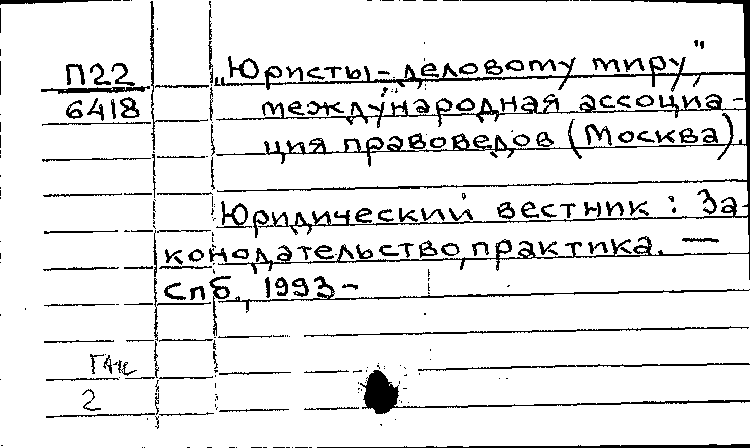 П22 „Юристы - деловому миру",
6418 международная ассоциа-
ция правоведов (Москва).
Юридический вестник : За-
конодательство, практика. —
Спб., 1993 -
2